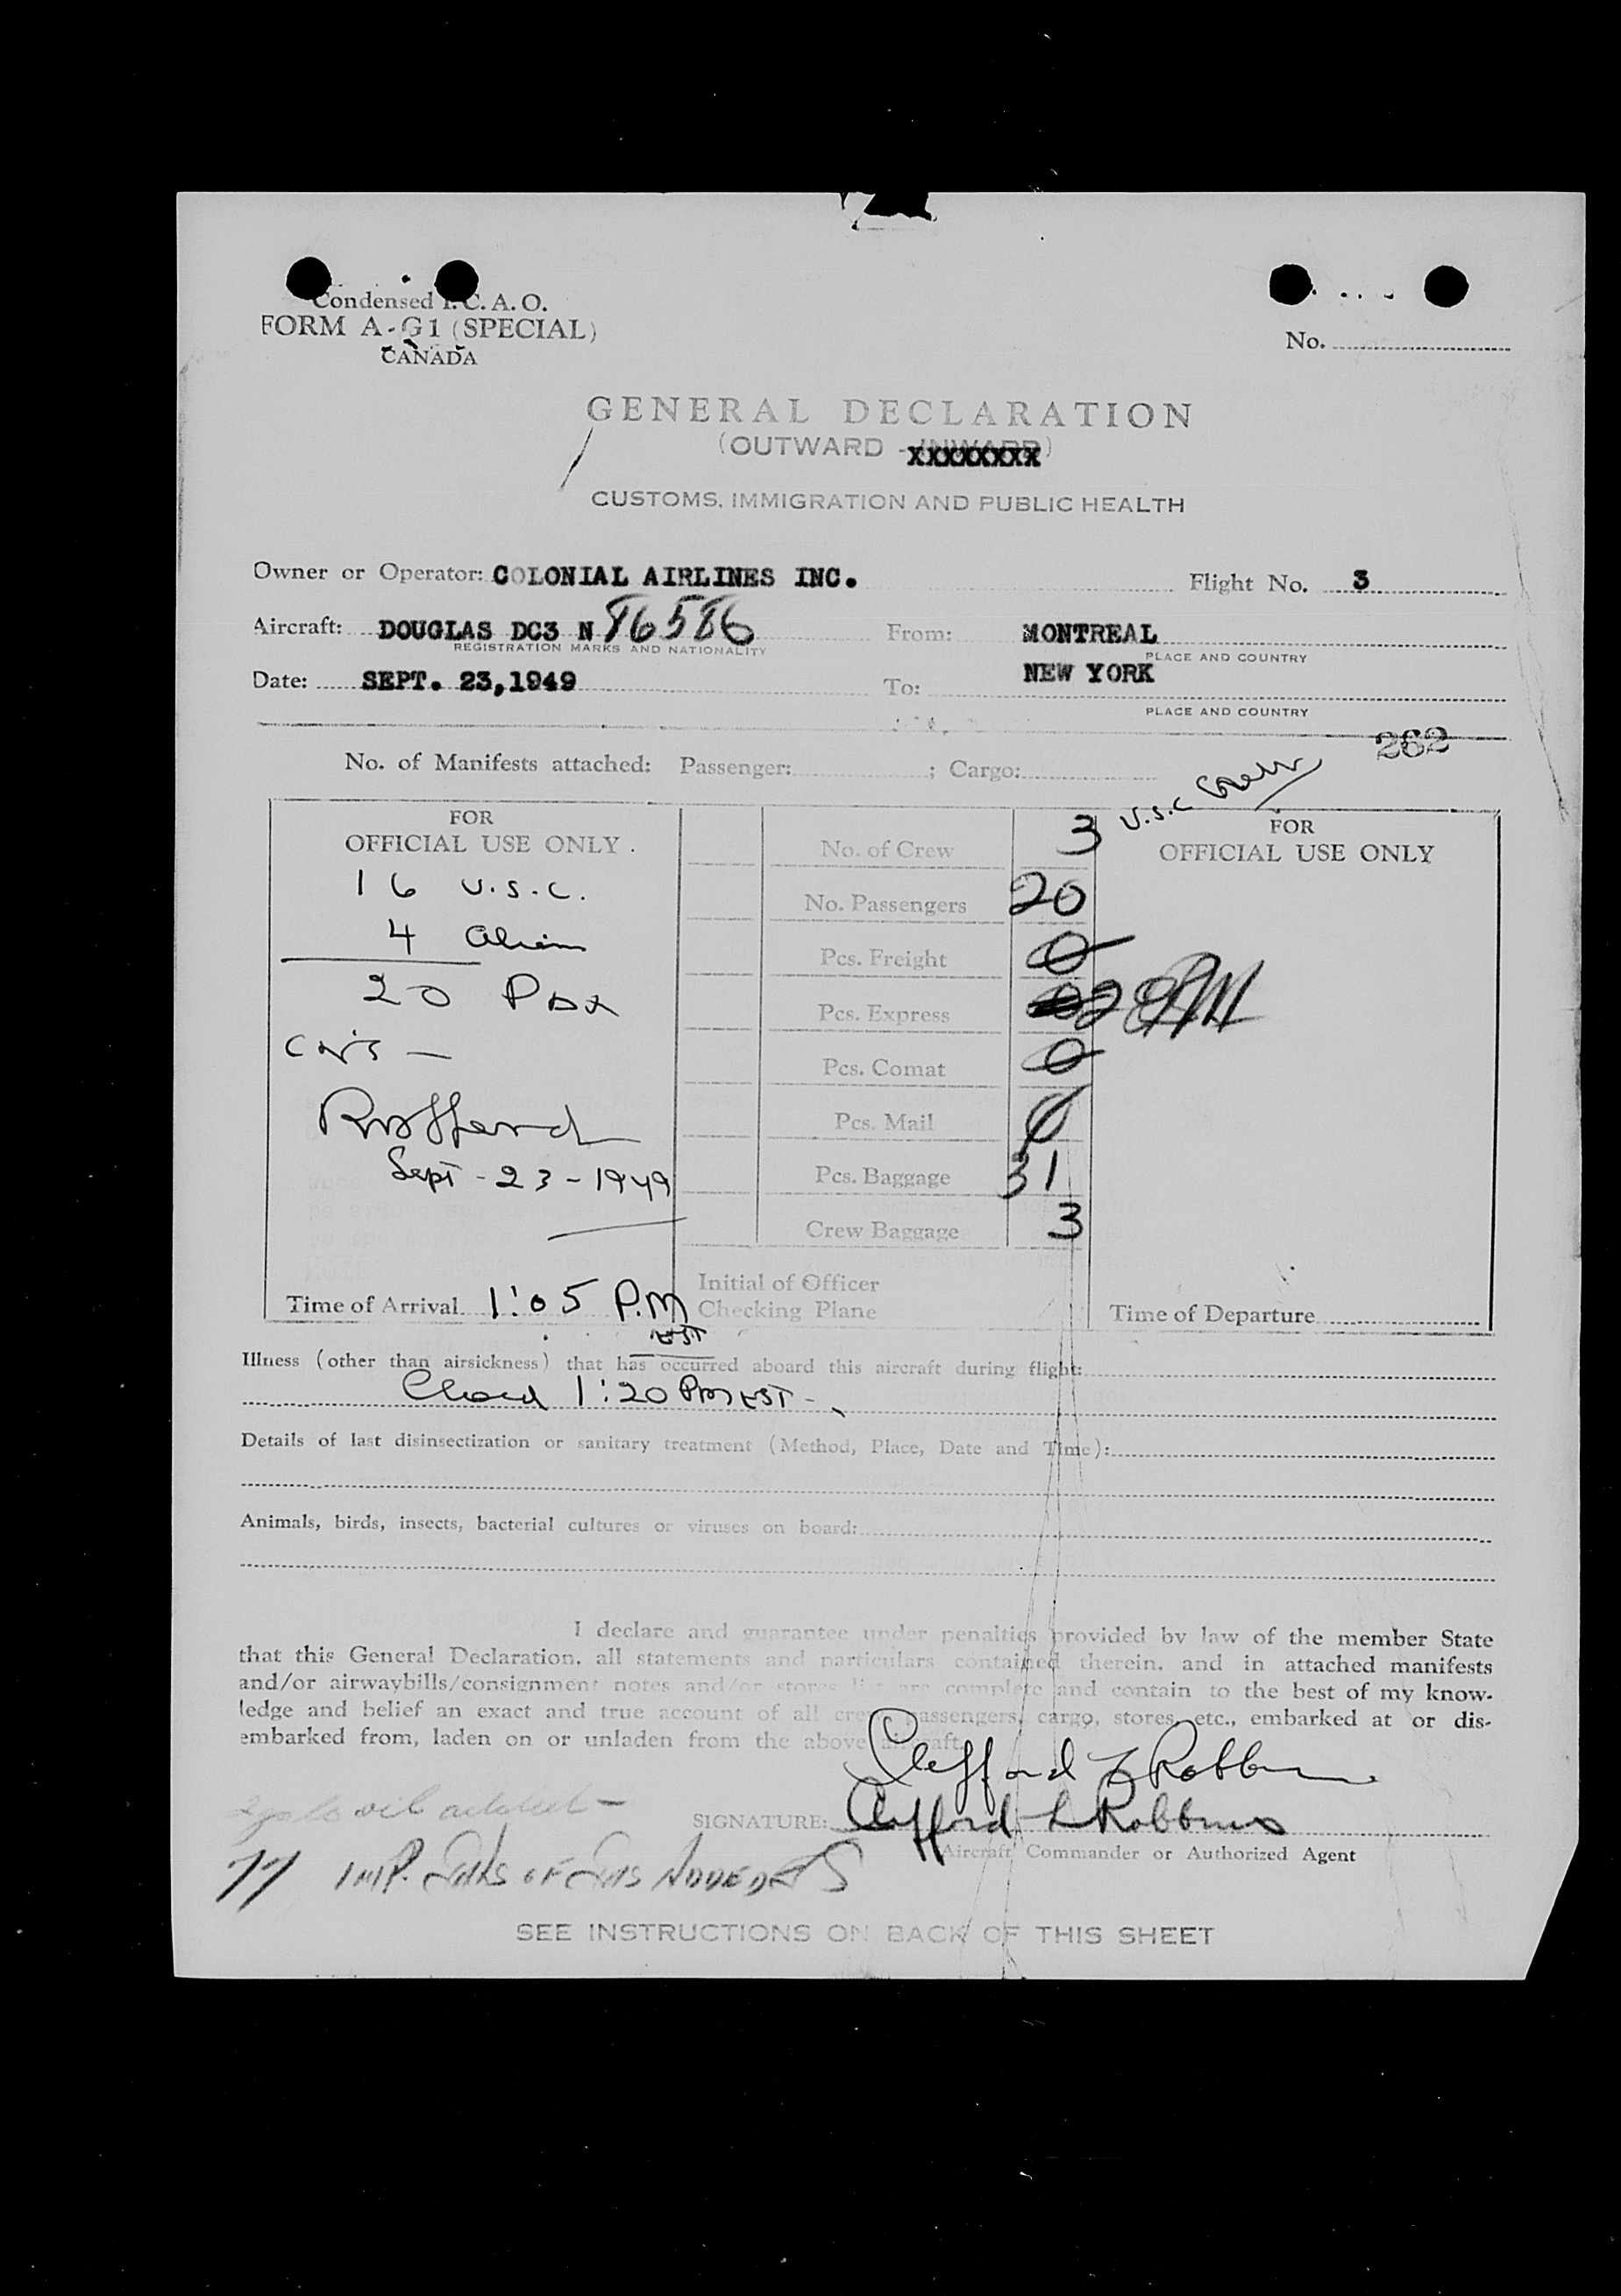 Condensed I.C.A.O.
FORM A-G1 (SPECIAL)
CANADA
No.
GENERAL DECLARATION
(OUTWARD - INWARD)
XXXXXXXX
CUSTOMS, IMMIGRATION AND PUBLIC HEALTH
Owner or Operator: COLONIAL AIRLINES INC. Flight No. 3
Aircraft: DOUGLAS DC3 N 86586 From: MONTREAL
REGISTRATION MARKS AND NATIONALITY PLACE AND COUNTRY
Date: SEPT. 23,1949 To: NEW YORK
PLACE AND COUNTRY
262
No. of Manifests attached: Passenger: ; Cargo:
FOR
OFFICIAL USE ONLY.
16 U.S.C.
4 Alien
20 Pax
Sept - 23 - 1949
Time of Arrival 1:05 P.M
EST
No. of Crew 3 U.S.C Crew
No. Passengers 20
Pcs. Freight 0
Pcs. Express 2
Pcs. Comat 0
Pcs. Mail 0
Pcs. Baggage 31
Crew Baggage 3
Initial of Officer
Checking Plane
FOR
OFFICIAL USE ONLY
Time of Departure
Illness (other than airsickness) that has occurred aboard this aircraft during flight:
Closed 1:20 PM EST -
Details of last disinsectization or sanitary treatment (Method, Place, Date and Time):
Animals, birds, insects, bacterial cultures or viruses on board:
I declare and guarantee under penalties provided by law of the member State
that this General Declaration, all statements and particulars contained therein, and in attached manifests
and/or airwaybills/consignment notes and/or stores list are complete and contain to the best of my know-
ledge and belief an exact and true account of all crew, passengers, cargo, stores, etc., embarked at or dis-
embarked from, laden on or unladen from the above aircraft.
Clifford L Robbins
oil added -
SIGNATURE: Clifford L Robbins
Aircraft Commander or Authorized Agent
77 IMP. GALS OF GAS ADDED
SEE INSTRUCTIONS ON BACK OF THIS SHEET